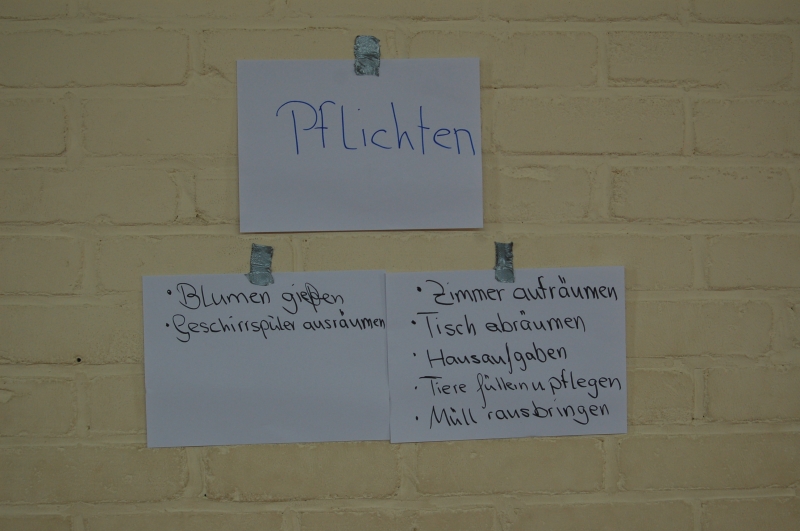 Pflichten
• Blumen gießen
• Geschirrspüler ausräumen
• Zimmer aufräumen
• Tisch abräumen
• Hausaufgaben
• Tiere füttern u pflegen
• Müll rausbringen